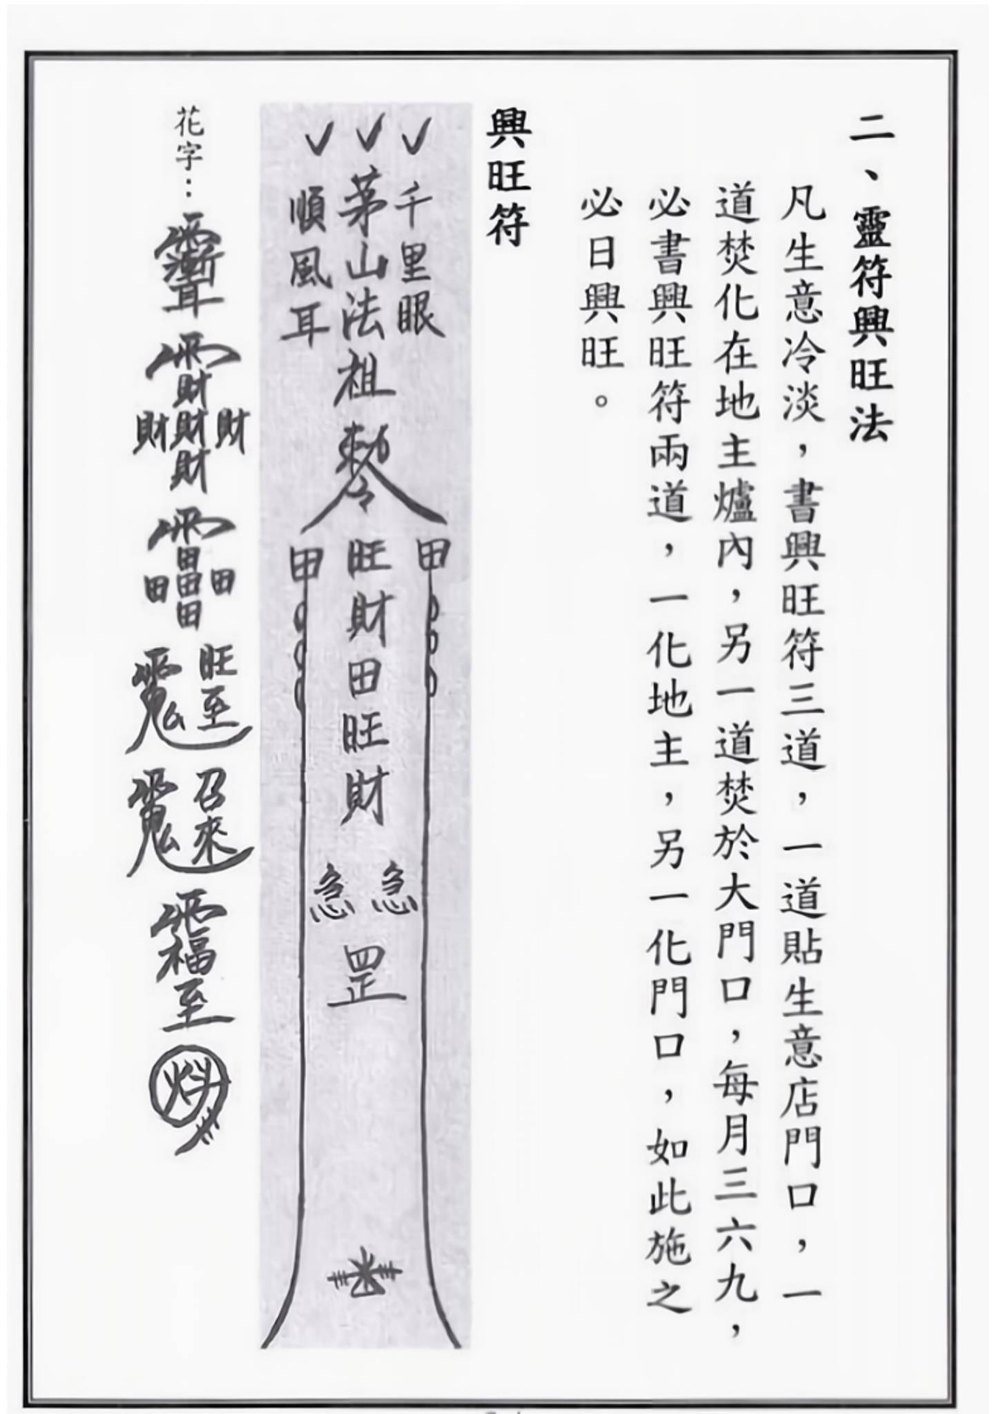 二、靈符興旺法
凡生意冷淡，書興旺符三道，一道貼生意店門口，一
道焚化在地主爐內，另一道焚於大門口，每月三六九，
必書興旺符兩道，一化地主，另一化門口，如此施之
必日興旺。
興旺符
千里眼
茅山法祖
順風耳
旺財田旺財
甲
甲
急急
罡
花字：
財
財財財
財
田
田田田
田
旺至
召來
福至